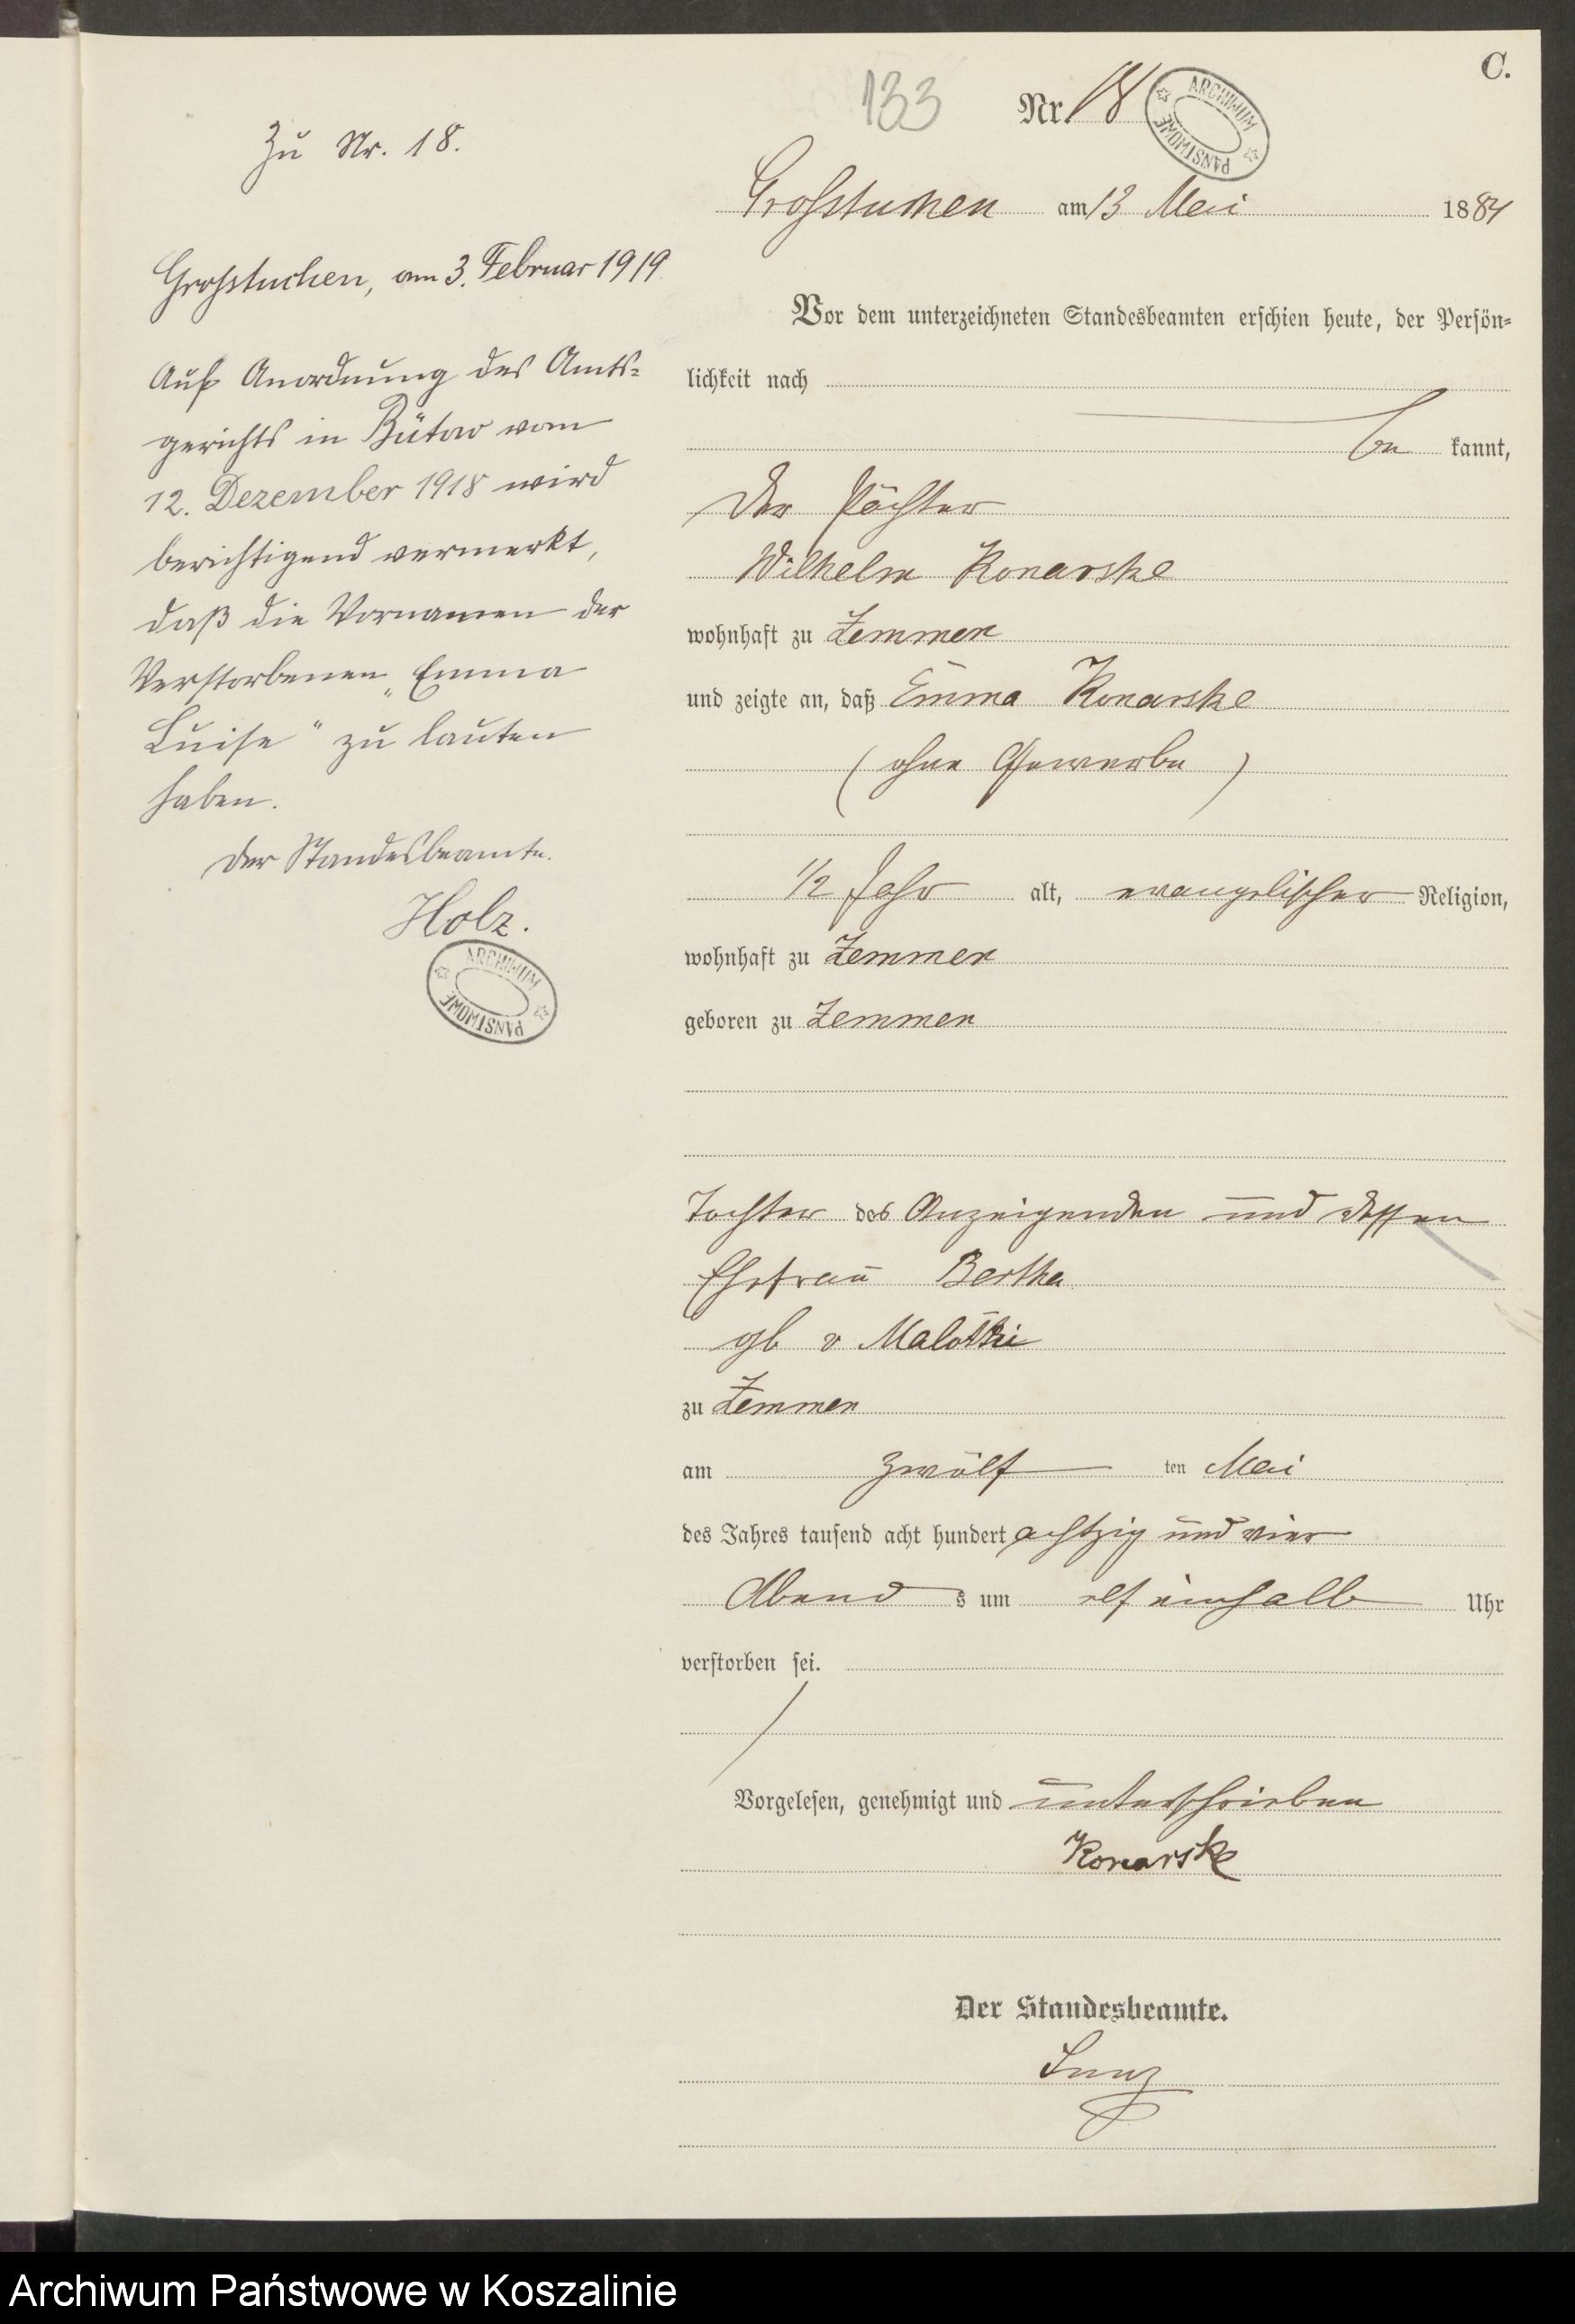 C.
133
Nr. 18
ARCHIWUM PAŃSTWOWE
Grosstuchen am 13 Mai 1884
Vor dem unterzeichneten Standesbeamten erschien heute, der Persön-
lichkeit nach
be kannt,
der Pächter
Wilhelm Konarske
wohnhaft zu Zemmen
und zeigte an, daß Emma Konarske
(ohne Gewerbe)
1/2 Jahr alt, evangelischer Religion,
wohnhaft zu Zemmen
geboren zu Zemmen
Tochter des Anzeigenden und dessen
Ehefrau Bertha
gb v Malottki
zu Zemmen
am zwölf ten Mai
des Jahres tausend acht hundert achtzig und vier
Abend s um elf einhalb Uhr
verstorben sei.
Vorgelesen, genehmigt und unterschrieben
Konarske
Der Standesbeamte.
Zu Nr. 18.
Großtuchen, am 3. Februar 1919
Auf Anordnung des Amts-
gerichts in Bütow vom
12. Dezember 1918 wird
berichtigend vermerkt,
daß die Vornamen der
Verstorbenen „Emma
Luise“ zu lauten
haben.
Der Standesbeamte.
Holz.
ARCHIWUM PAŃSTWOWE
Archiwum Państwowe w Koszalinie